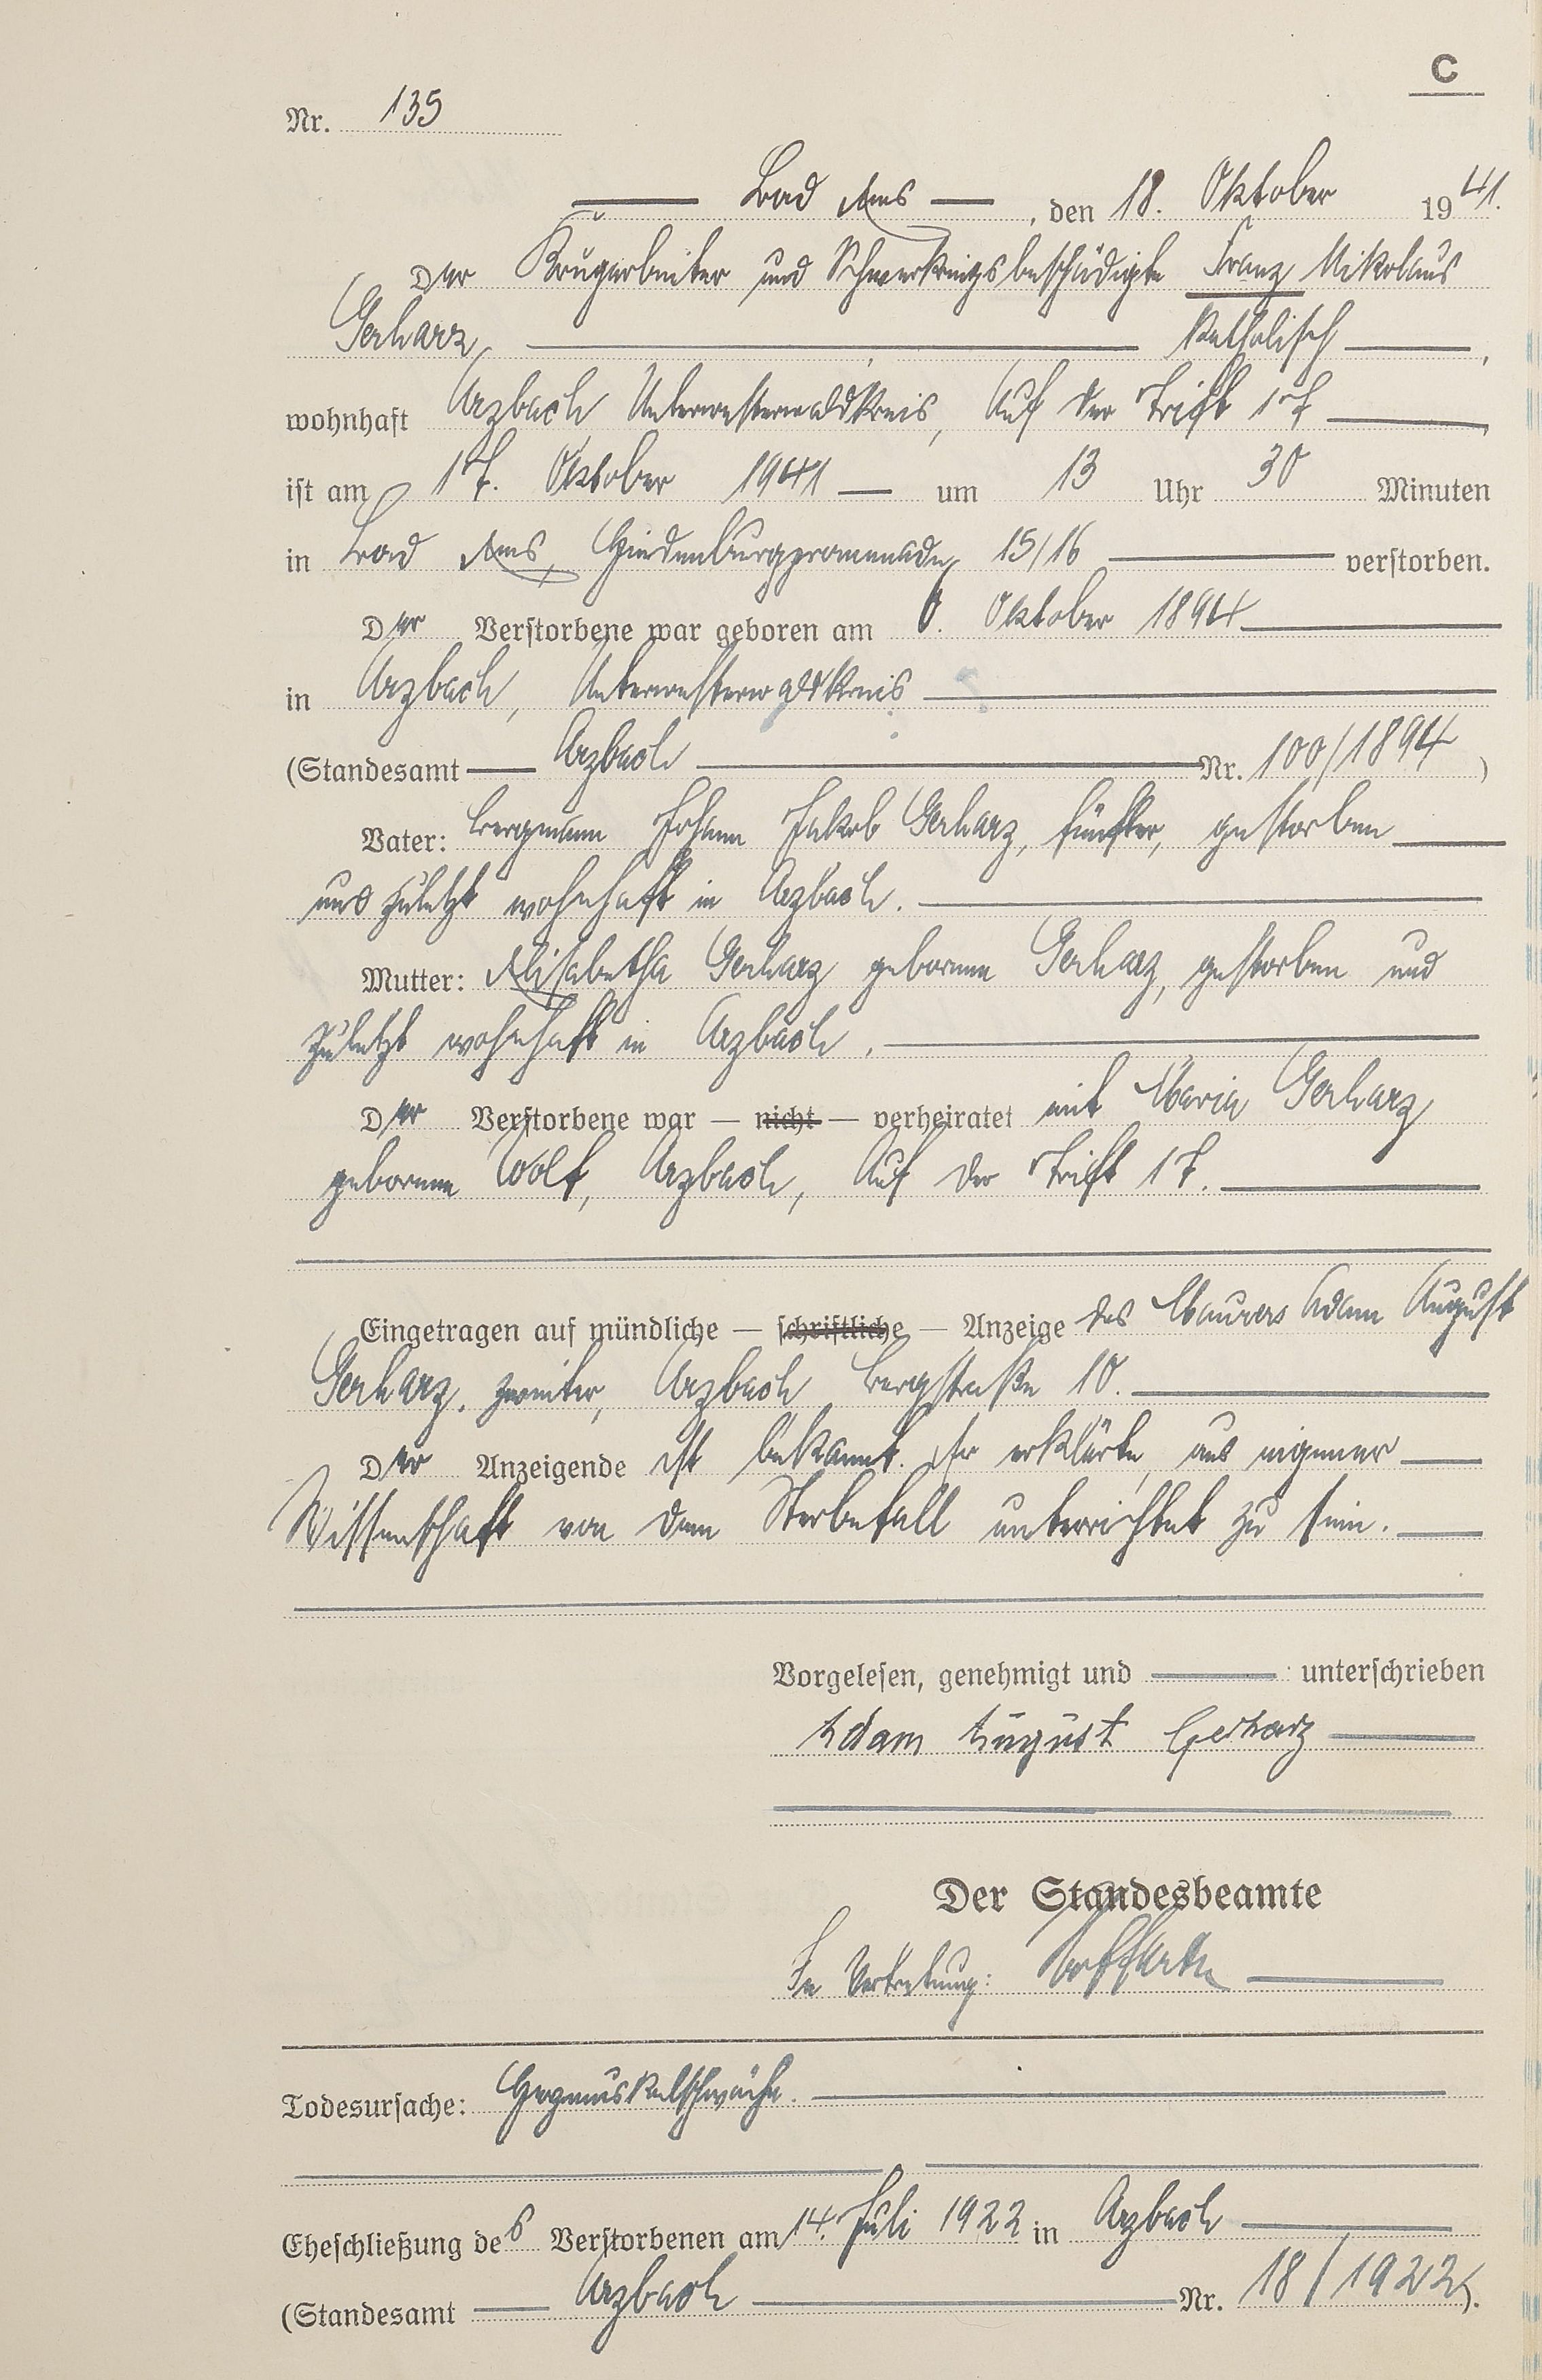 C
Nr. 135
Bad Ems, den 18. Oktober 1941.
Der Krugarbeiter und Schwerkriegsbeschädigte Franz Nikolaus
Gerharz, katholisch,
wohnhaft Arzbach Unterwesterwaldkreis, Auf der Trift 17,
ist am 17. Oktober 1941 um 13 Uhr 30 Minuten
in Bad Ems, Hindenburgpromenade 15/16 verstorben.
Der Verstorbene war geboren am Oktober 1894
in Arzbach, Unterwesterwaldkreis
(Standesamt Arzbach Nr. 100/1894)
Vater: Bergmann Johann Jakob Gerharz, fünfter, gestorben
und zuletzt wohnhaft in Arzbach.
Mutter: Elisabetha Gerharz geborene Gerharz, gestorben und
zuletzt wohnhaft in Arzbach.
Der Verstorbene war — nicht — verheiratet mit Maria Gerharz
geborene Wolf, Arzbach, Auf der Trift 17.
Eingetragen auf mündliche — schriftliche — Anzeige des Maurers Adam August
Gerharz, zweiter, Arzbach Bergstraße 10.
Der Anzeigende ist bekannt. Er erklärte, aus eigener
Wissenschaft von dem Sterbefall unterrichtet zu sein.
Vorgelesen, genehmigt und unterschrieben
Adam August Gerharz
Der Standesbeamte
In Vertretung:
Todesursache: Herzmuskelschwäche.
Eheschließung des Verstorbenen am 14. Juli 1922 in Arzbach
(Standesamt Arzbach Nr. 18/1922).